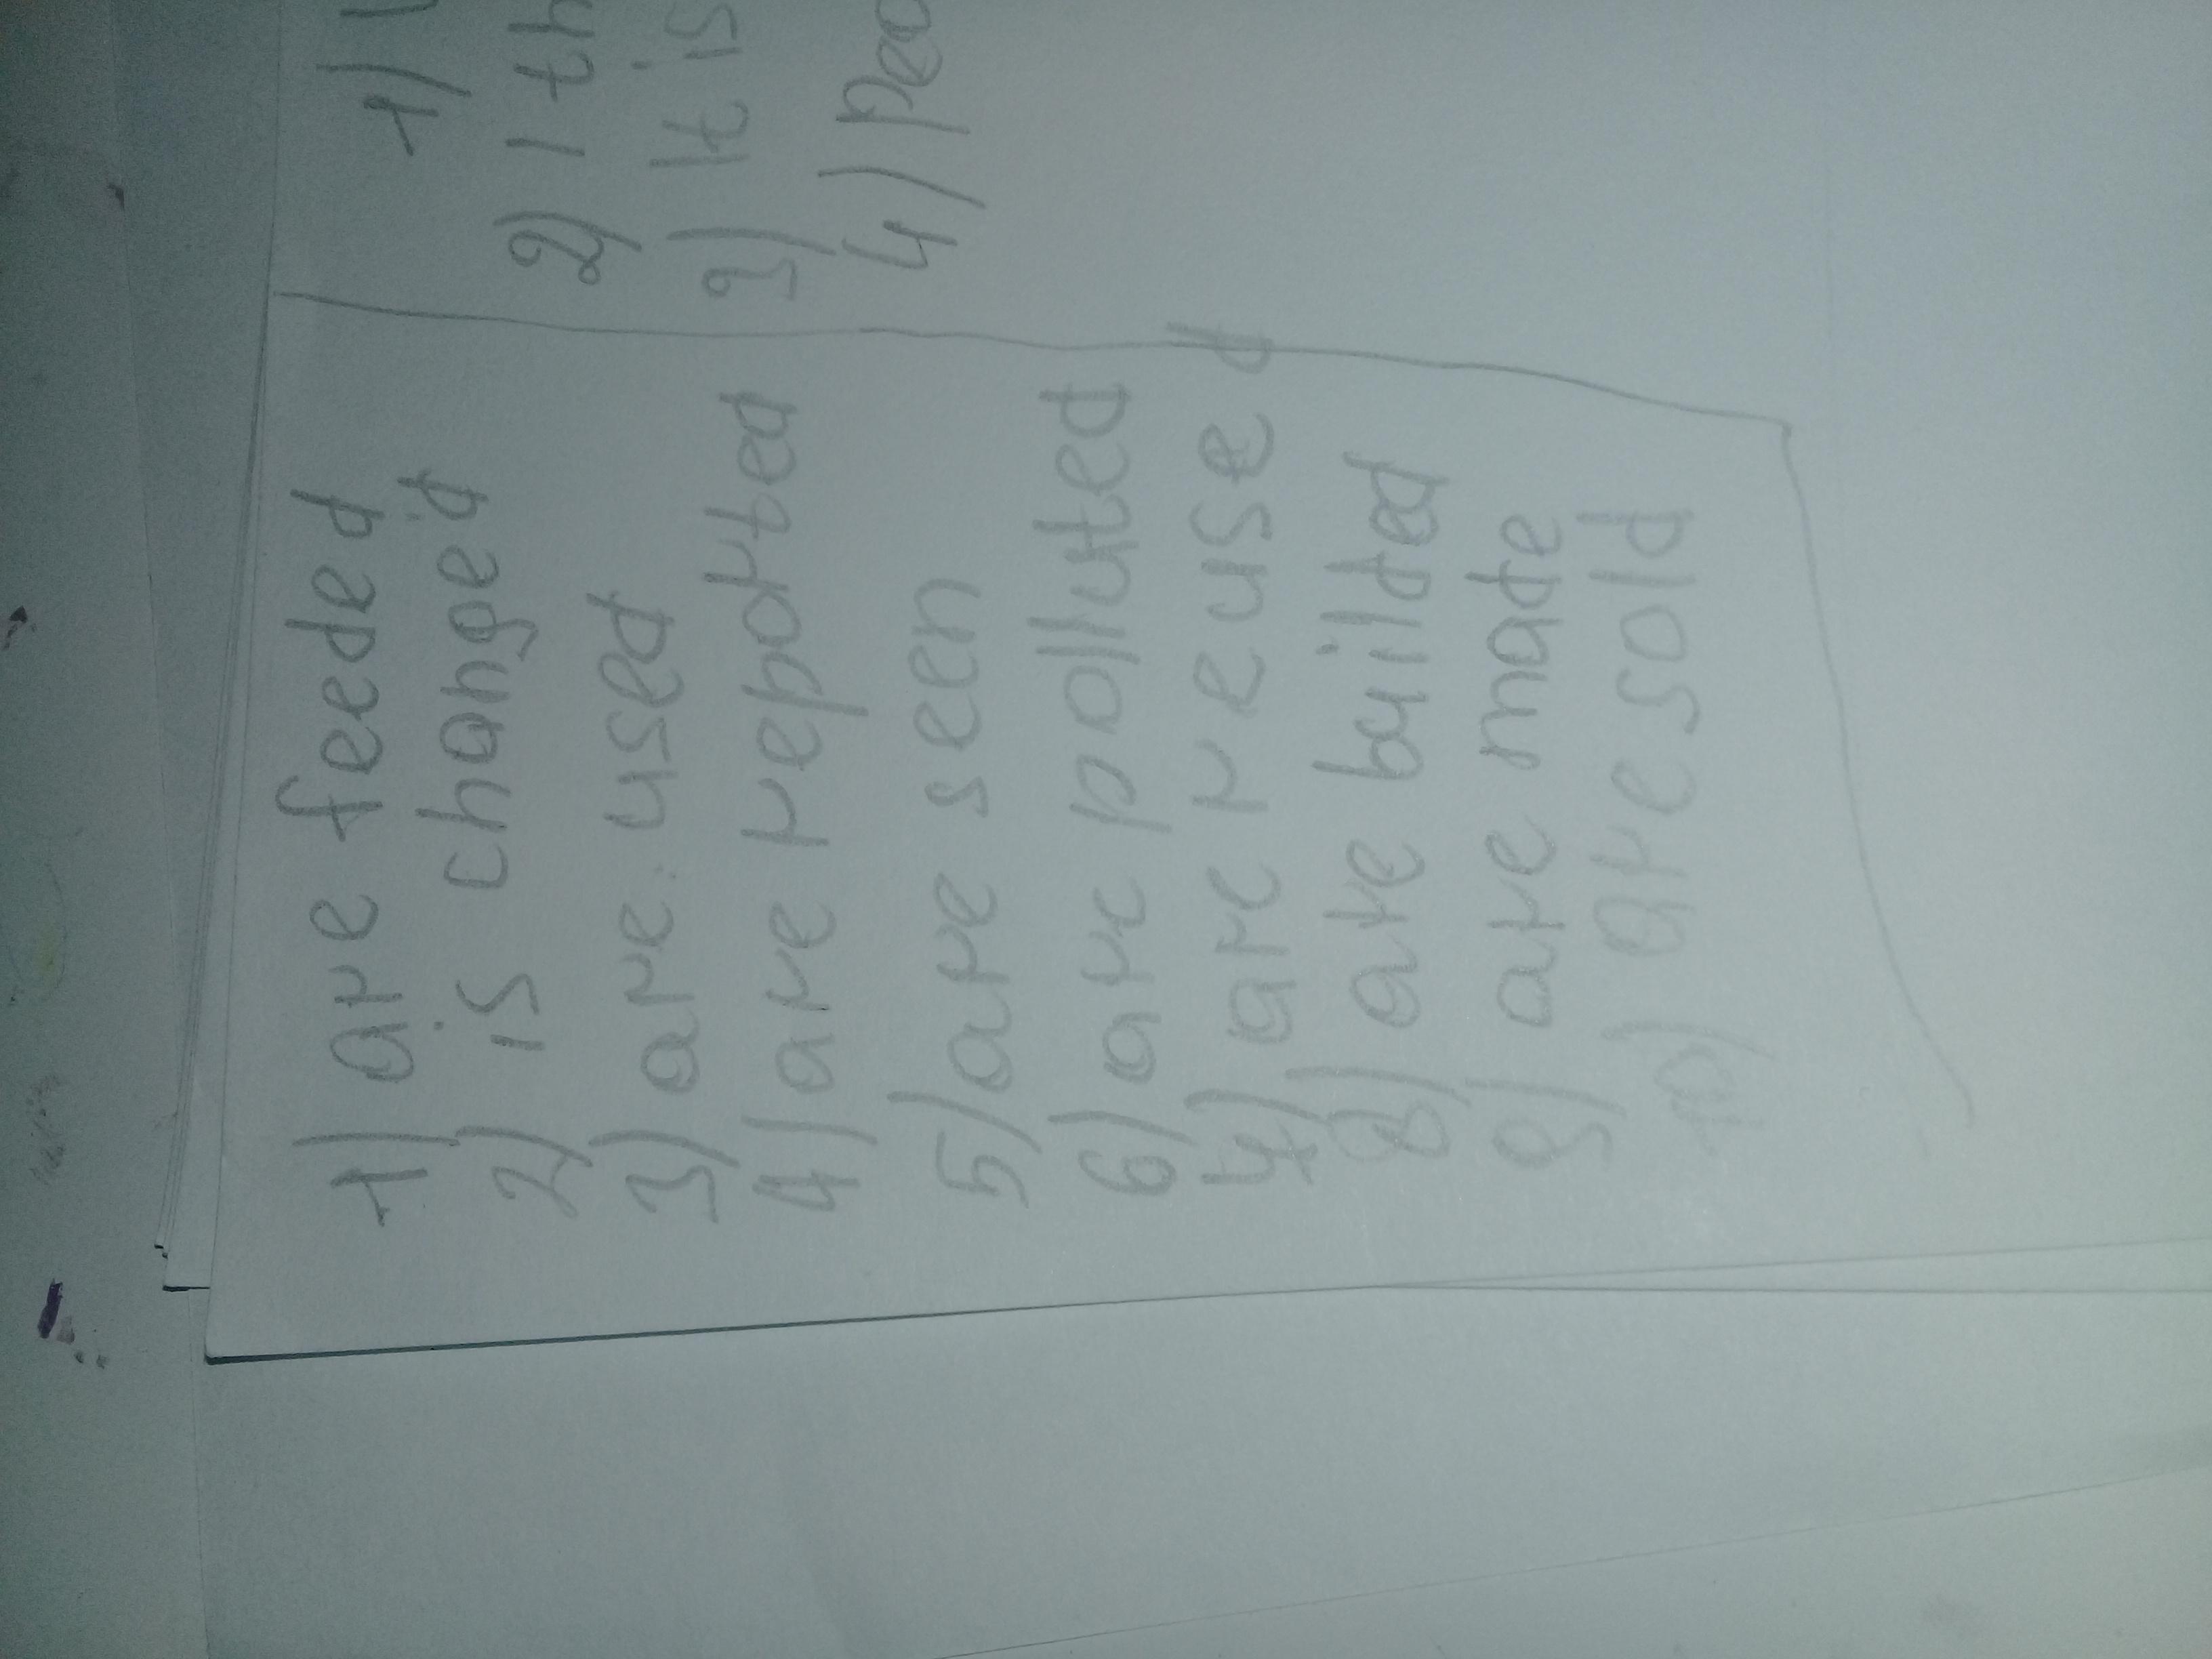 1) are feeded
2) is changed
3) are used
4) are reported
5) are seen
6) are polluted
7) are reused
8) are builded
9) are made
10) are sold
1)
2) I th
3) It is
4) Peo